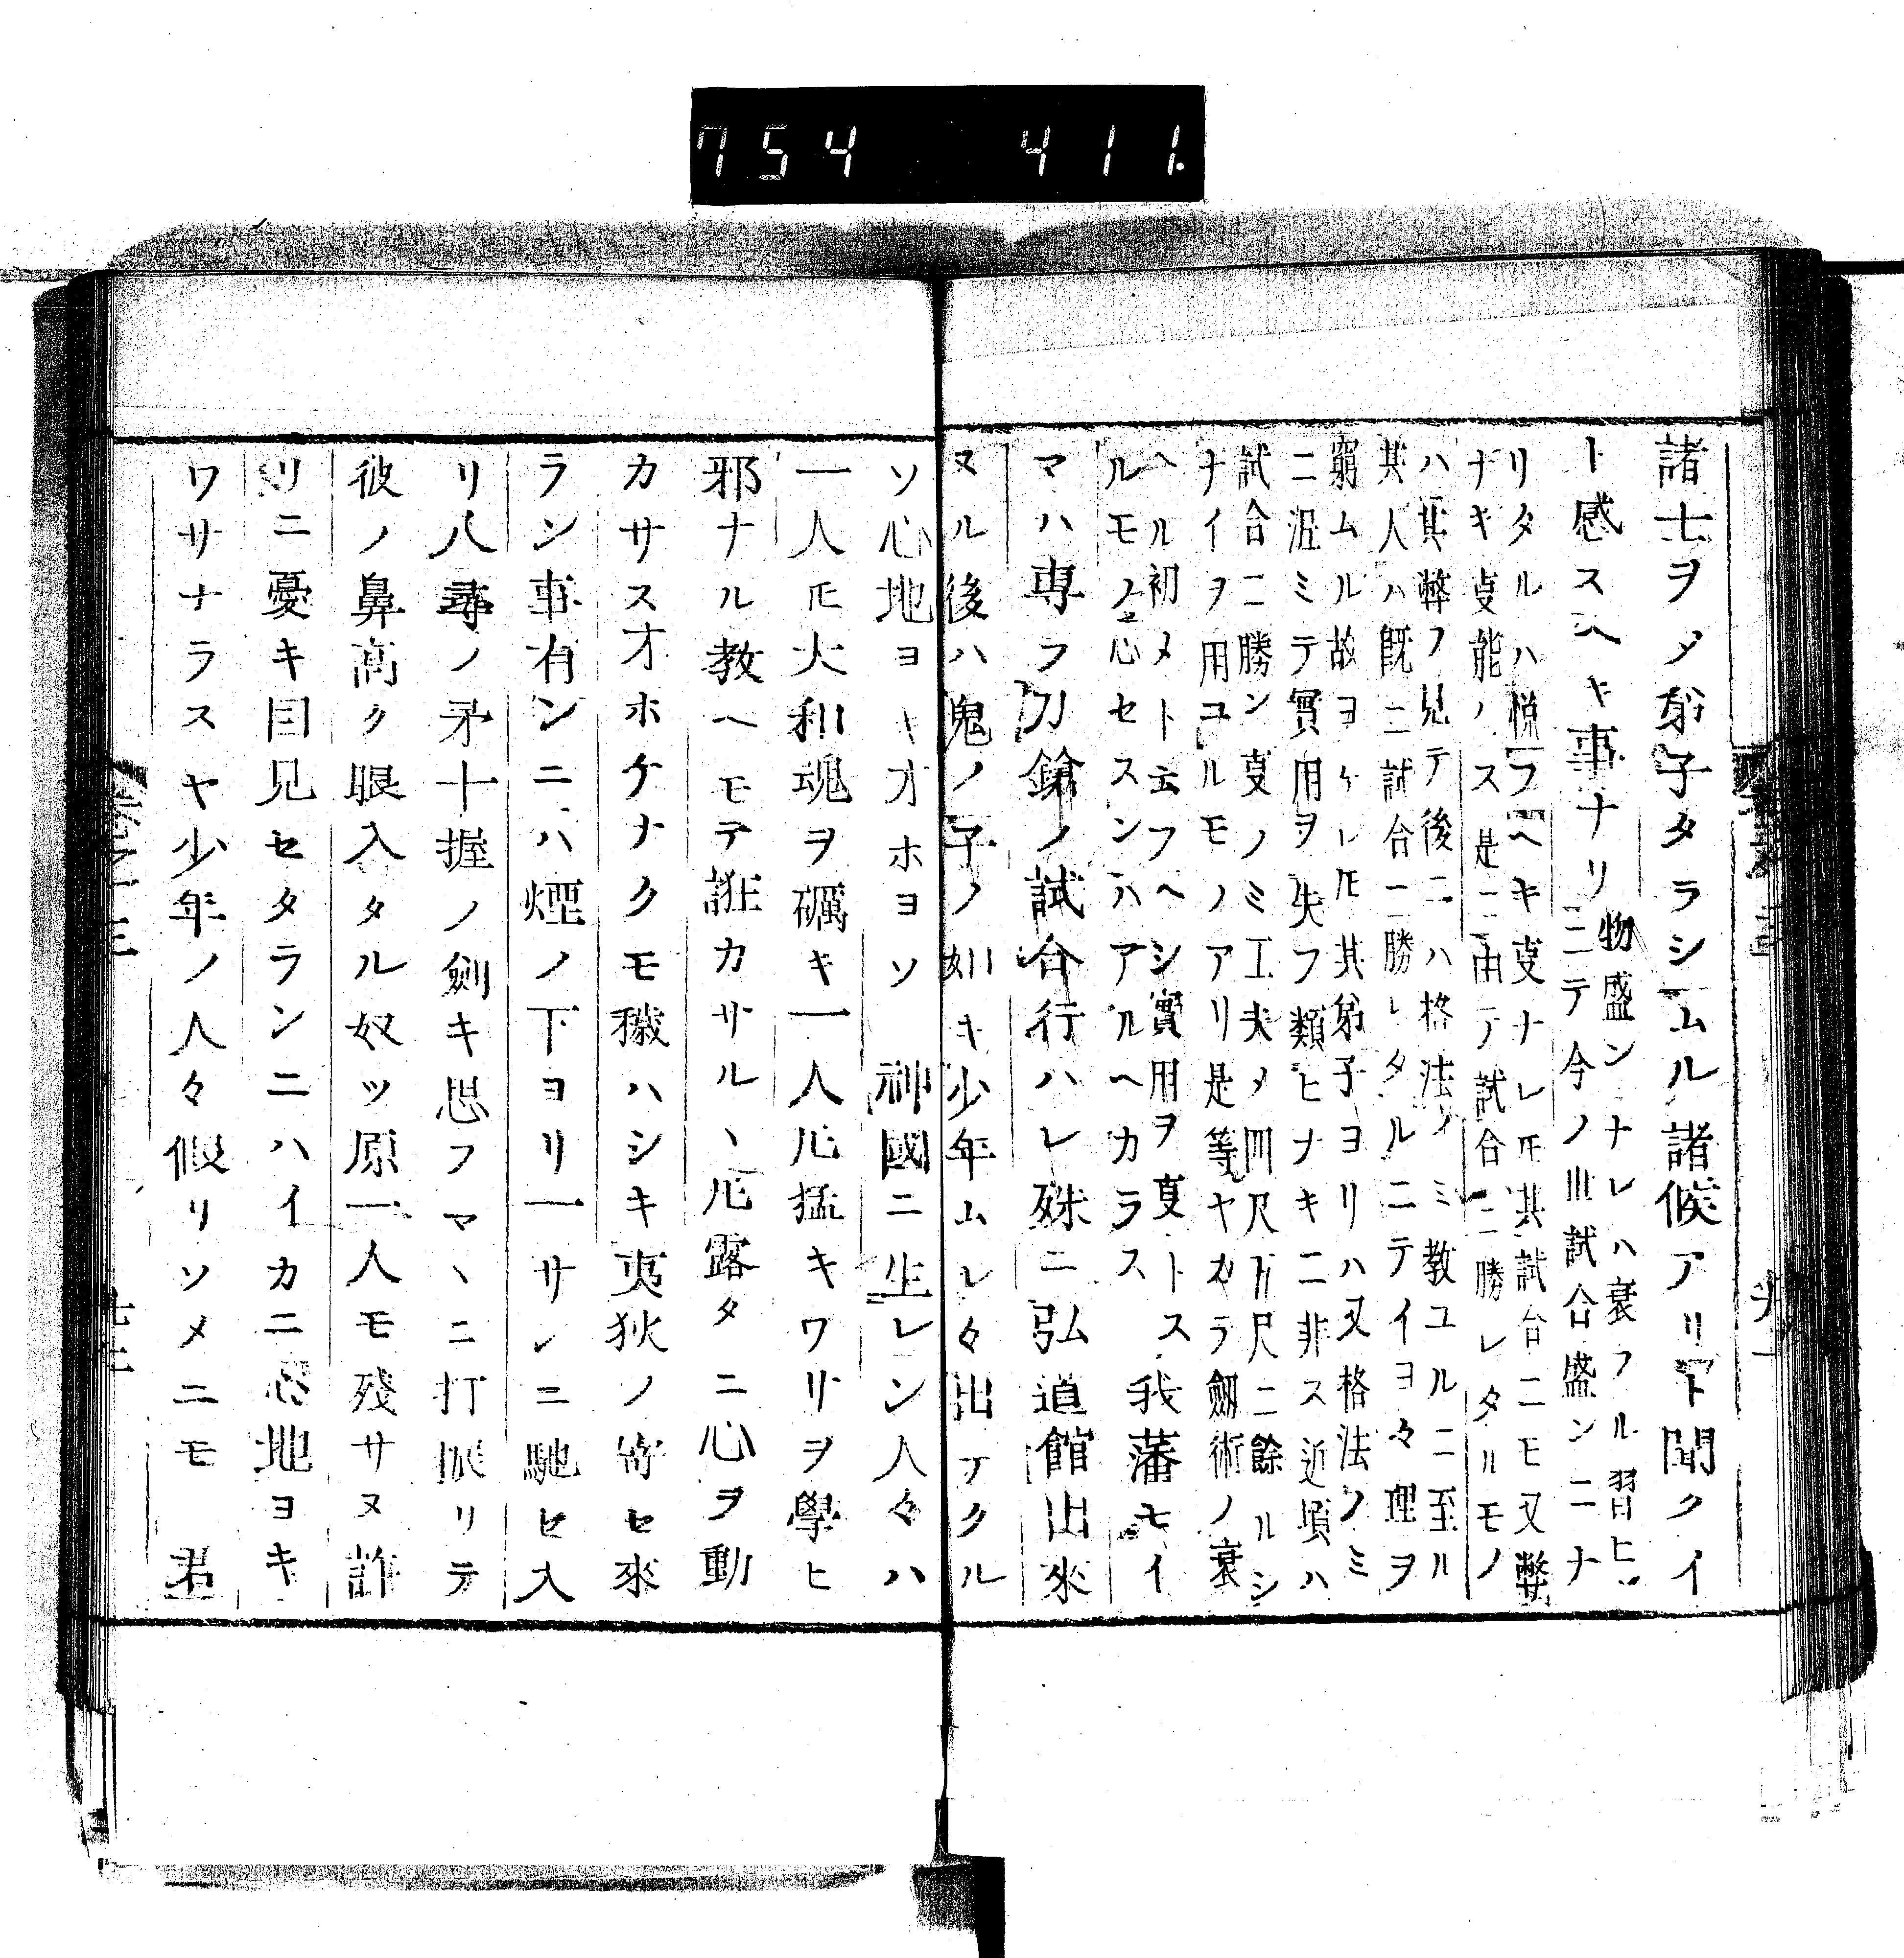 754 411.
諸士ヲメ弟子タラシムル諸候アリト聞クイ
ト感スヘキ事ナリ
物盛ンナレハ衰フル習ヒ
ニテ今ノ世試合盛ンニナ
リタルハ悦フヘキ㕝ナレ𪜈其試合ニモ又弊
ナキ㕝能ノス是ニ由テ試合ニ勝レタルモノ
ハ其弊フ見テ後ニハ格法ノミ教ユルニ至ル
其人ハ既ニ試合ニ勝レタルニテイヨ々理ヲ
窮ムル故ヨケレ𪜈其弟子ヨリハ又格法ノミ
ニ泥ミテ實用ヲ失フ類ヒナキニ非ス近頃ハ
試合ニ勝ン㕝ノミ工夫メ四尺五尺ニ餘ルシ
ナイヲ用ユルモノアリ是等ヤカラ劔術ノ衰
ヘル初メト云フヘシ實用ヲ㕝トス
ルモノ心セスンハアルヘカラス
我藩モイ
マハ専ラ刀鎗ノ試合行ハレ殊ニ弘道館出來
ヌル後ハ鬼ノ子ノ如キ少年ムレ々出テクル
ソ心地ヨキオホヨソ 神國ニ生レン人々ハ
一人𪜈大和魂ヲ礪キ一人𪜈猛キワリヲ學ヒ
邪ナル教ヘモテ誑カサルヽ𪜈露タニ心ヲ動
カサスオホケナクモ穢ハシキ夷狄ノ寄セ來
ラン事有ンニハ煙ノ下ヨリ一サンニ馳セ入
リ八尋ノ矛十握ノ劍キ思フマヽニ打振リテ
彼ノ鼻高ク眼入タル奴ツ原一人モ残サヌ許
リニ憂キ目見セタランニハイカニ心地ヨキ
ワサナラスヤ少年ノ人々假リソメニモ 君